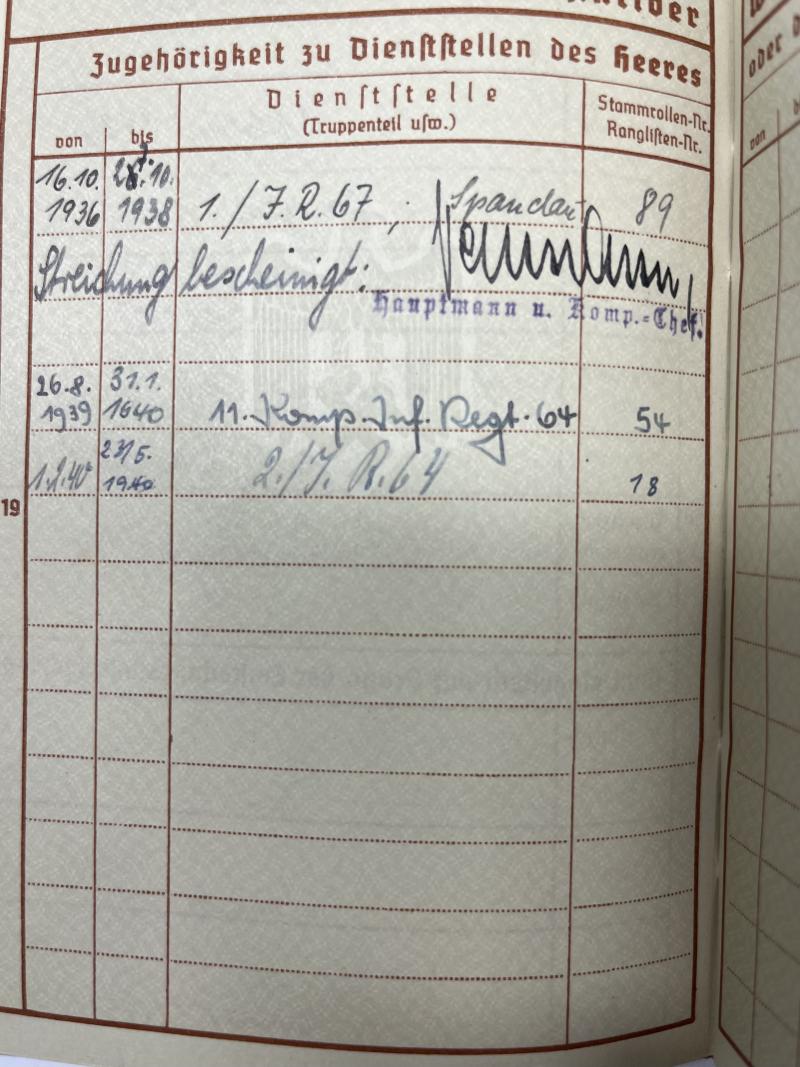 Zugehörigkeit zu Dienststellen des Heeres
von
bis
Dienststelle
(Truppenteil usw.)
Stammrollen-Nr.
Ranglisten-Nr.
16.10. 10.
1936 1938 1./J.R.67, Spandau 89
Streichung bescheinigt:
Hauptmann u. Komp.-Chef.
26.8. 31.1.
1939 1640 11. Komp. Inf. Regt. 64 54
23/5.
1.2.40 1940 2./J.R.64 18
19
oder
von